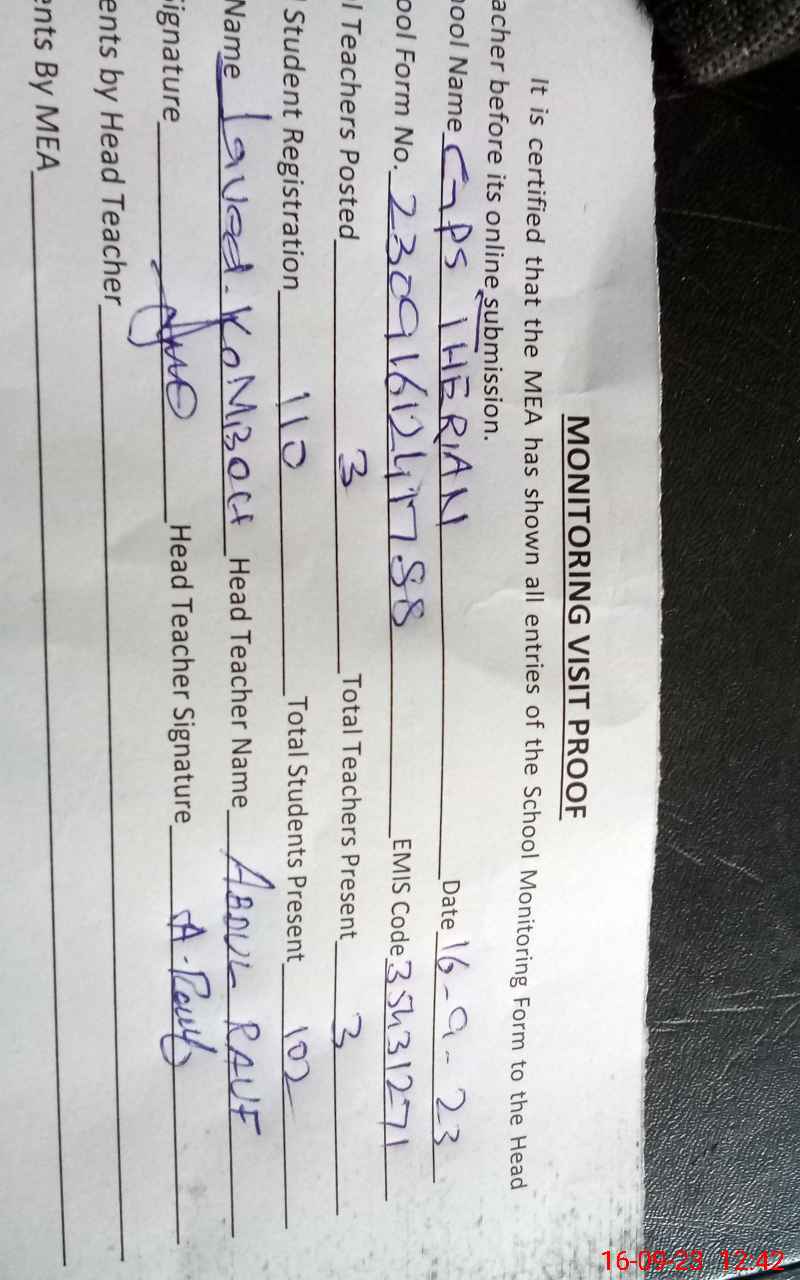 MONITORING VISIT PROOF
It is certified that the MEA has shown all entries of the School Monitoring Form to the Head
acher before its online submission.
ool Name GPS THERIAN Date 16-9-23
ool Form No. 230916124788 EMIS Code 35431271
l Teachers Posted 3 Total Teachers Present 3
l Student Registration 110 Total Students Present 102
Name Javed. KOMBOH Head Teacher Name ABDUL RAUF
ignature Head Teacher Signature A. Rauf
ents by Head Teacher
ents By MEA
16-09-23 12:42